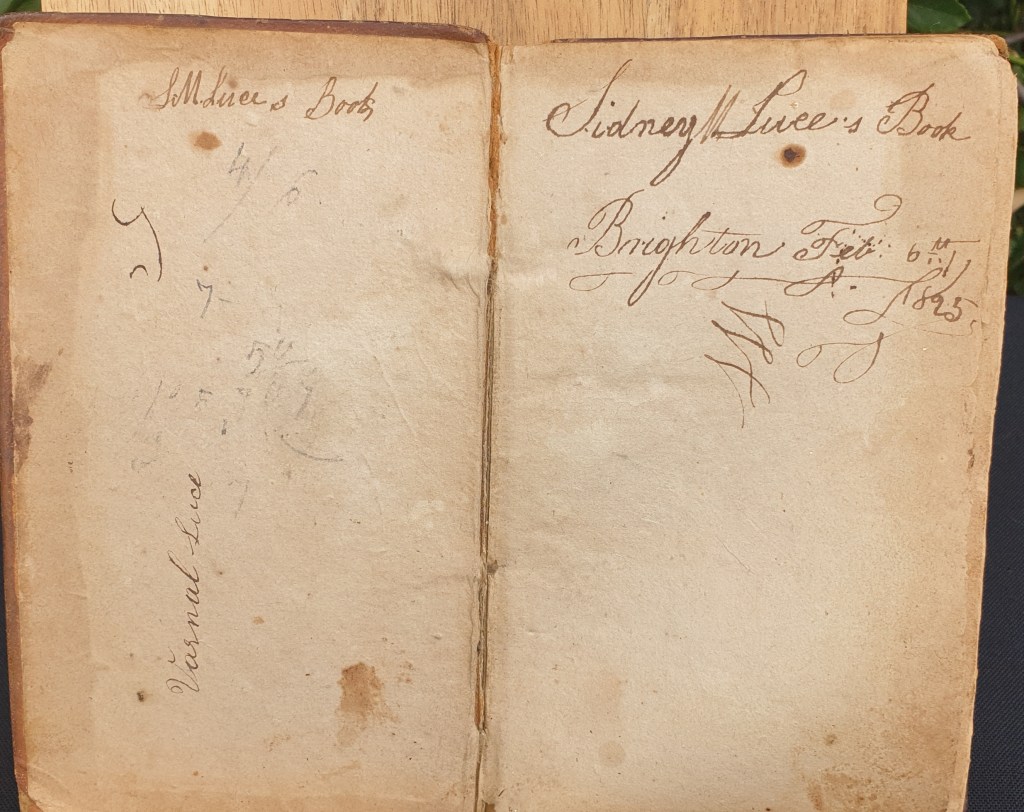 S M Luce s Book
4/6
7
54
Varnal Luce
Sidney M Luce's Book
Brighton Feb. 6th
1825